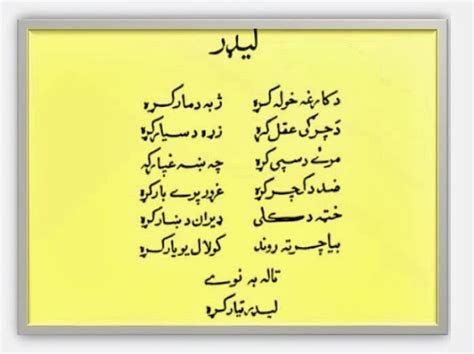 لیډر
د کارغه خوله کړه ژبه د مار کړه
د چرګی عقل کړه زړه د سیار کړه
موے د سپی کړه چه ښه غپار کړه
ضد د کچر کړه غرور پرے بار کړه
خټه د کلی ډیران د ښار کړه
بیا چرته روند کولال یو یار کړه
تاله به نوے
لیډر تیار کړه